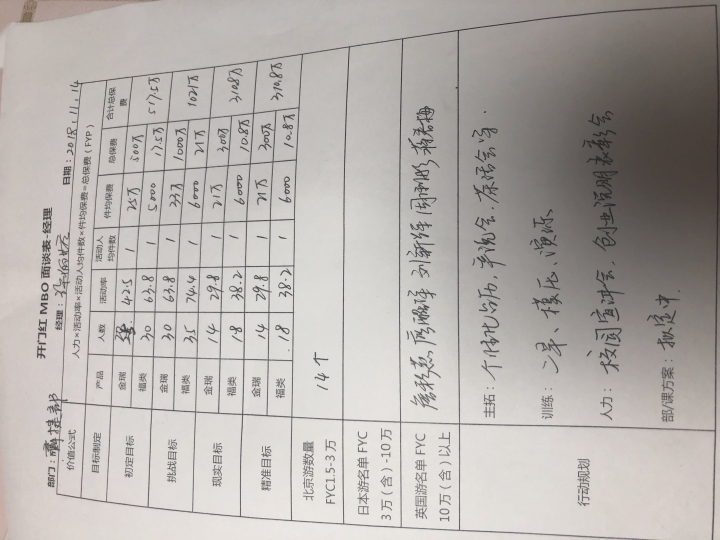 开门红 MBO 面谈表-经理
部门： 经理： 日期：2018.11.14
价值公式 人力×活动率×活动人均件数×件均保费=总保费（FYP）
目标制定 产品 人数 活动率 活动人均件数 件均保费 总保费 合计总保费
初定目标 金瑞 42.5 1 25万 500万 517.5万
福类 30 63.8 1 5000 17.5万
挑战目标 金瑞 30 63.8 1 33万 1000万 1021万
福类 35 74.4 1 6000 21万
现实目标 金瑞 14 29.8 1 21万 300万 310.8万
福类 18 38.2 1 6000 10.8万
精准目标 金瑞 14 29.8 1 21万 300万 310.8万
福类 18 38.2 1 6000 10.8万
北京游数量 FYC1.5-3 万 14个
日本游名单 FYC 3 万（含）-10 万
英国游名单 FYC 10 万（含）以上
行动规划
主拓： 产说会、茶话会等.
训练： 二早、模压、演练、
人力： 校园宣讲会、创业说明
部/课方案： 拟定中.